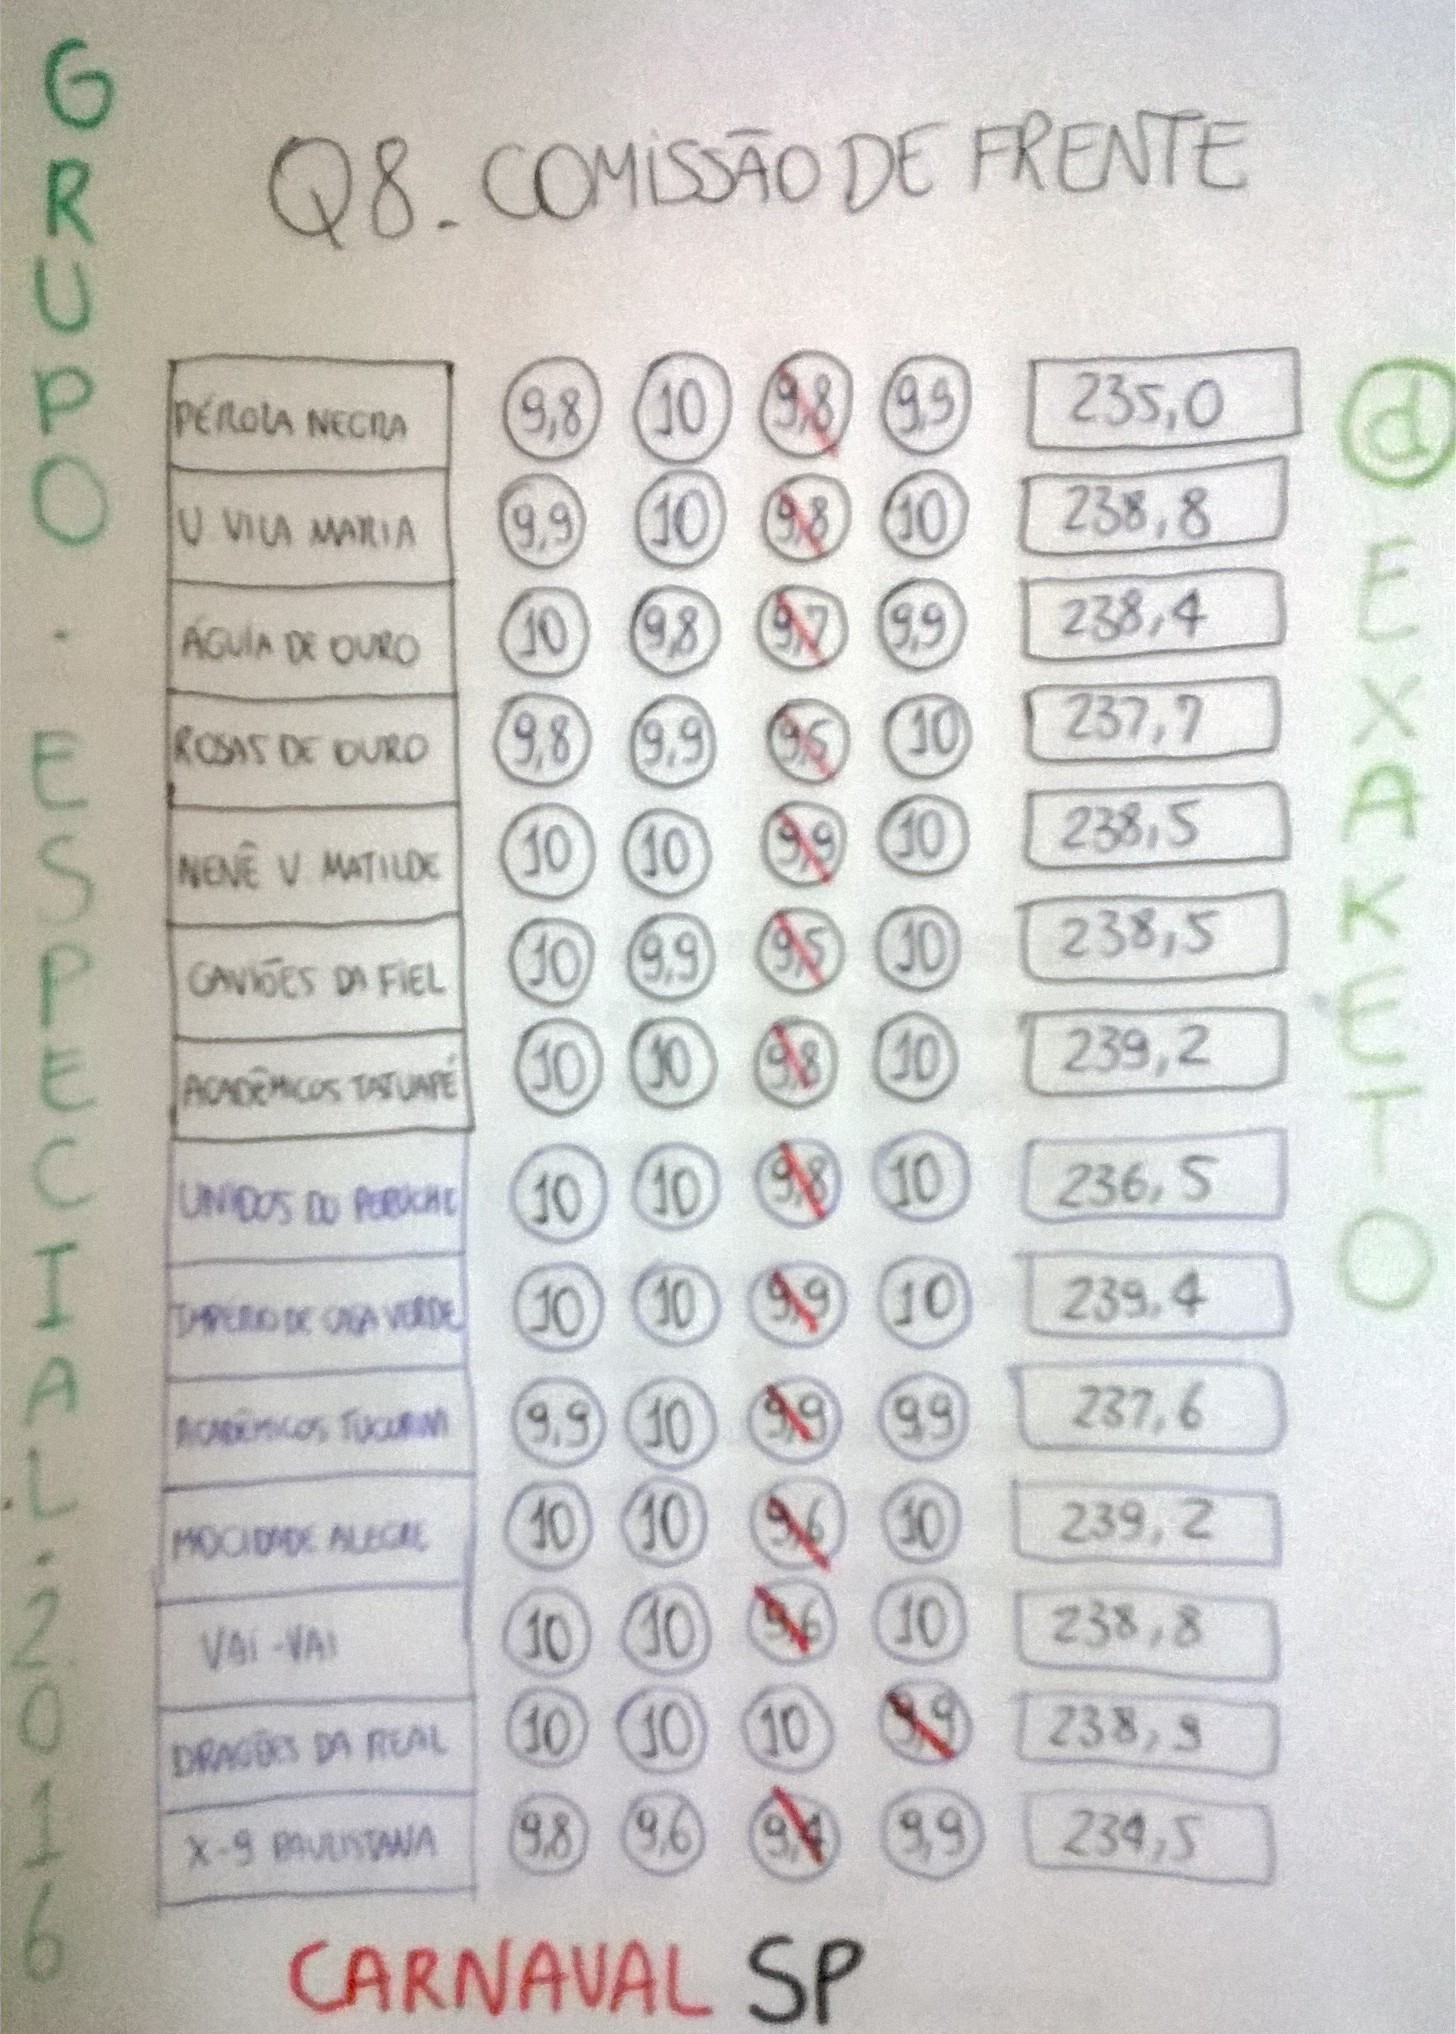 GRUPO . ESPECIAL . 2016
Q8. COMISSÃO DE FRENTE
PÉROLA NEGRA 9,8 10 9,8 9,9 235,0
U VILA MARIA 9,9 10 9,8 10 238,8
ÁGUIA DE OURO 10 9,8 9,7 9,9 238,4
ROSAS DE OURO 9,8 9,9 9,5 10 237,7
NENÊ V MATILDE 10 10 9,9 10 238,5
GAVIÕES DA FIEL 10 9,9 9,5 10 238,5
ACADÊMICOS TATUAPÉ 10 10 9,8 10 239,2
UNIDOS DO PERUCHE 10 10 9,8 10 236,5
IMPÉRIO DE CASA VERDE 10 10 9,9 10 239,4
ACADÊMICOS TUCURUVI 9,9 10 9,9 9,9 237,6
MOCIDADE ALEGRE 10 10 9,6 10 239,2
VAI-VAI 10 10 9,6 10 238,8
DRAGÕES DA REAL 10 10 10 9,9 238,9
X-9 PAULISTANA 9,8 9,6 9,4 9,9 234,5
CARNAVAL SP
@EXAKETO